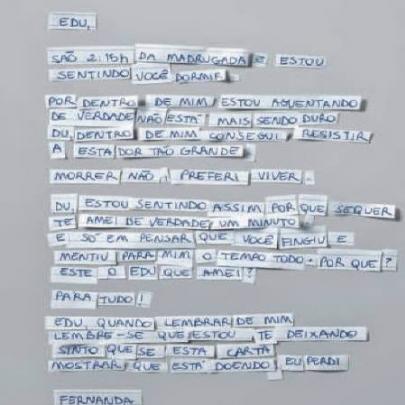 EDU,
SÃO 2:15h DA MADRUGADA E ESTOU
SENTINDO VOCÊ DORMIR.
POR DENTRO DE MIM ESTOU AGUENTANDO
DE VERDADE NÃO ESTÁ MAIS SENDO DURO
DU, DENTRO DE MIM CONSEGUI RESISTIR
A ESTA DOR TÃO GRANDE.
MORRER NÃO, PREFERI VIVER.
DU, ESTOU SENTINDO ASSIM POR QUE SEQUER
TE AMEI DE VERDADE UM MINUTO
E SÓ EM PENSAR QUE VOCÊ FINGIU E
MENTIU PARA MIM O TEMPO TODO. POR QUE?
ESTE O EDU QUE AMEI?
PARA TUDO!
EDU, QUANDO LEMBRAR DE MIM
LEMBRE-SE QUE ESTOU TE DEIXANDO
SINTO QUE SE ESTA CARTA
MOSTRAR QUE ESTÁ DOENDO, EU PERDI
FERNANDA